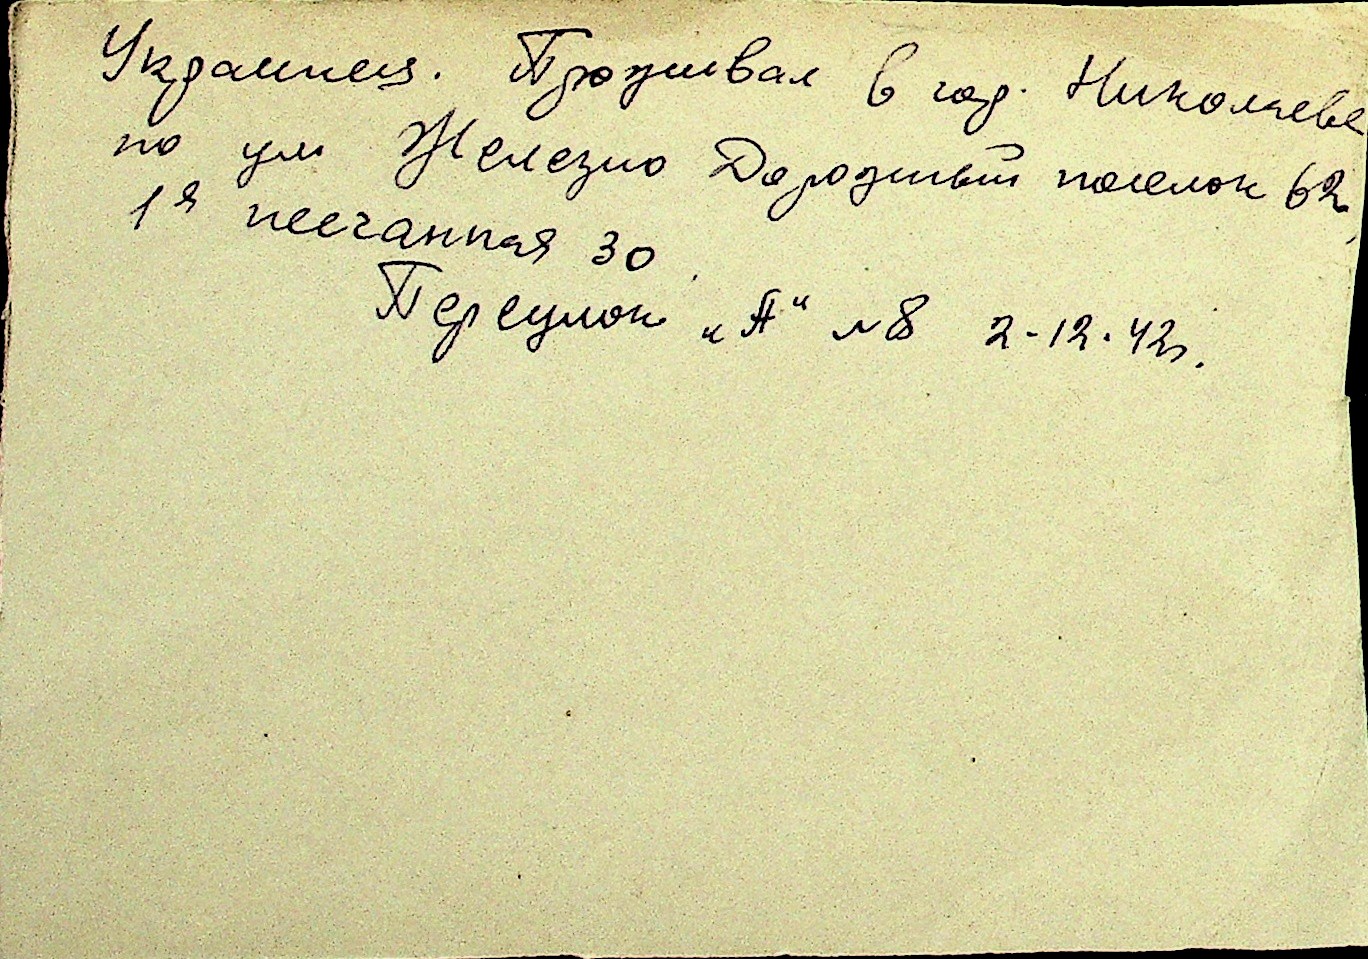 Украинец. Проживал в гор. Николаеве
по ул Железно Дорожный поселок 62,
1я песчанная 30
Переулок „А“ № 8 2-12-42г.